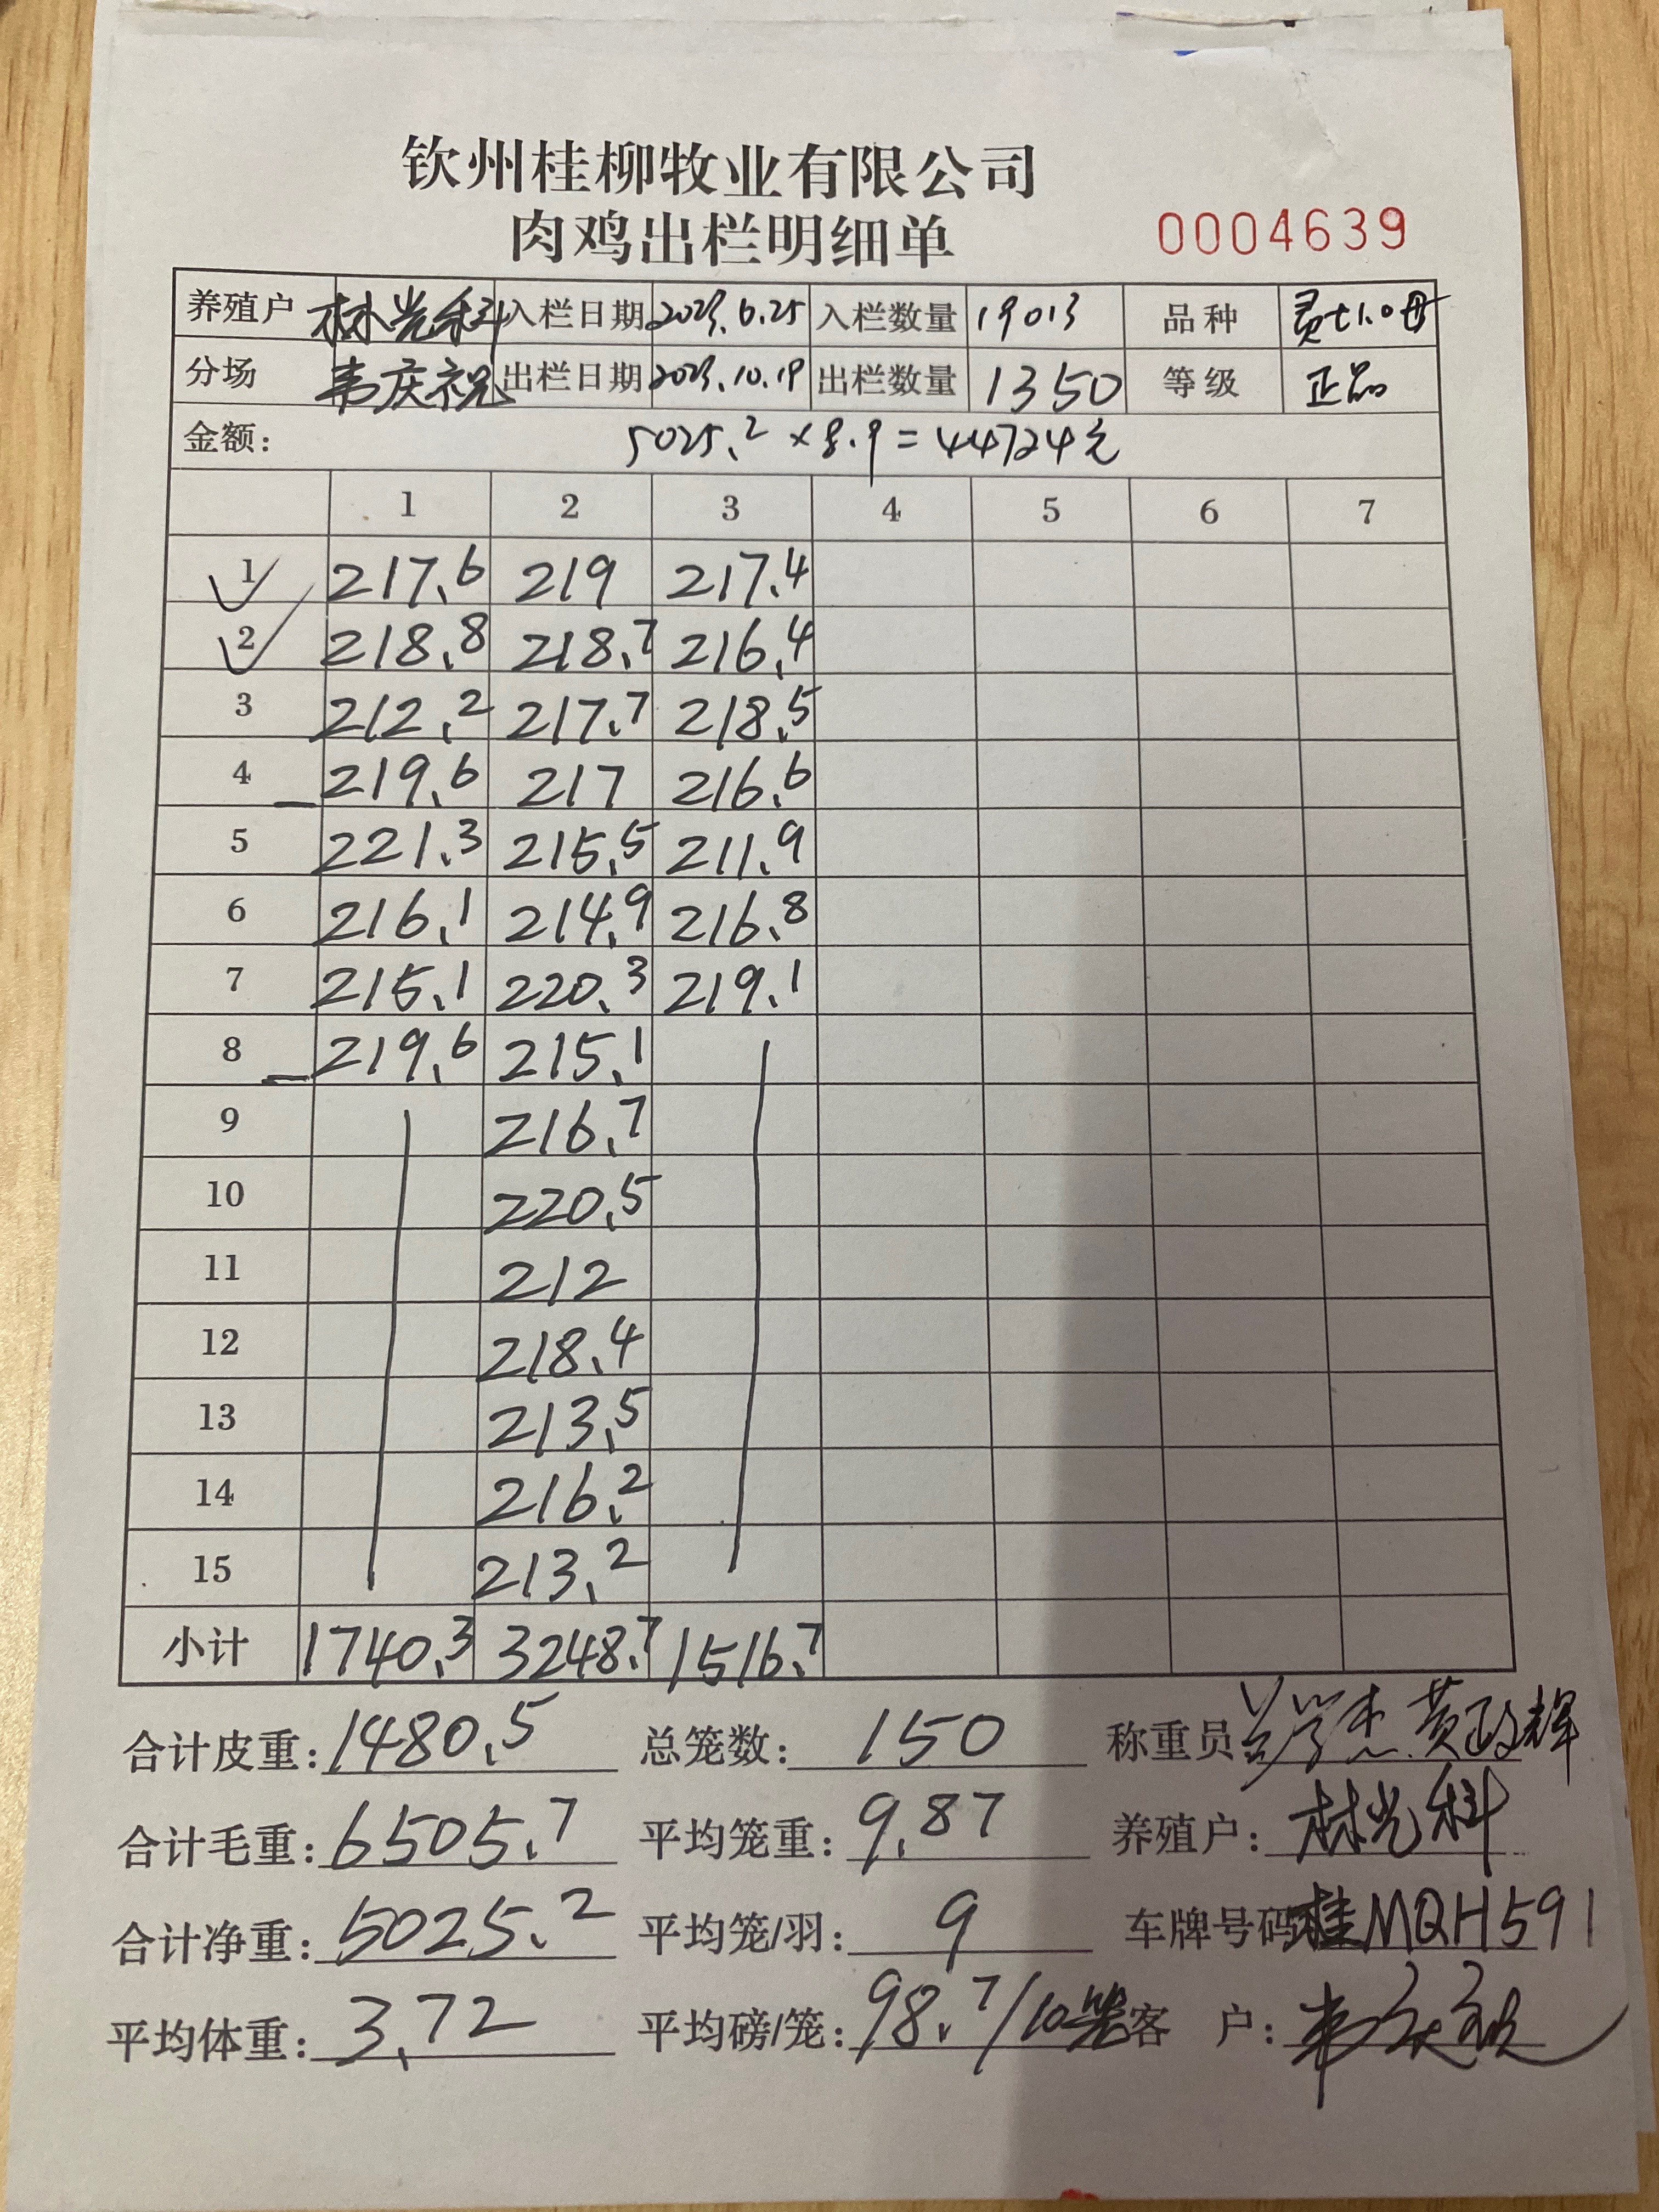 钦州桂柳牧业有限公司
肉鸡出栏明细单 0004639
养殖户 林光科 入栏日期 2023.6.25 入栏数量 19013 品种
分场 韦庆祝 出栏日期 2023.10.19 出栏数量 1350 等级 正品
金额: 5025.2×8.9=44724元
1 2 3 4 5 6 7
1 217.6 219 217.4
2 218.8 218.7 216.4
3 212.2 217.7 218.5
4 219.6 217 216.6
5 221.3 215.5 211.9
6 216.1 214.9 216.8
7 215.1 220.3 219.1
8 219.6 215.1
9 216.7
10 220.5
11 212
12 218.4
13 213.5
14 216.2
15 213.2
小计 1740.3 3248.7 1516.7
合计皮重: 1480.5 总笼数: 150 称重员
合计毛重: 6505.7 平均笼重: 9.87 养殖户: 林光科
合计净重: 5025.2 平均笼/羽: 9 车牌号码 桂MQH591
平均体重: 3.72 平均磅/笼: 98.7/10笼 客 户: